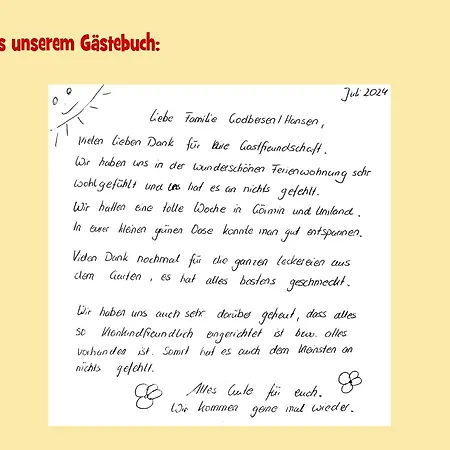 s unserem Gästebuch:
Juli 2024
Liebe Familie Godbersen/Hansen,
Vielen lieben Dank für eure Gastfreundschaft.
Wir haben uns in der wunderschönen Ferienwohnung sehr
wohlgefühlt und uns hat es an nichts gefehlt.
Wir hatten eine tolle Woche in Görmin und Umland.
In eurer kleinen grünen Oase konnte man gut entspannen.
Vielen Dank nochmal für die ganzen Leckereien aus
dem Garten, es hat alles bestens geschmeckt.
Wir haben uns auch sehr darüber gefreut, dass alles
so kleinkindfreundlich eingerichtet ist bzw. alles
vorhanden ist. Somit hat es auch dem Kleinsten an
nichts gefehlt.
Alles Gute für euch.
Wir kommen gerne mal wieder.